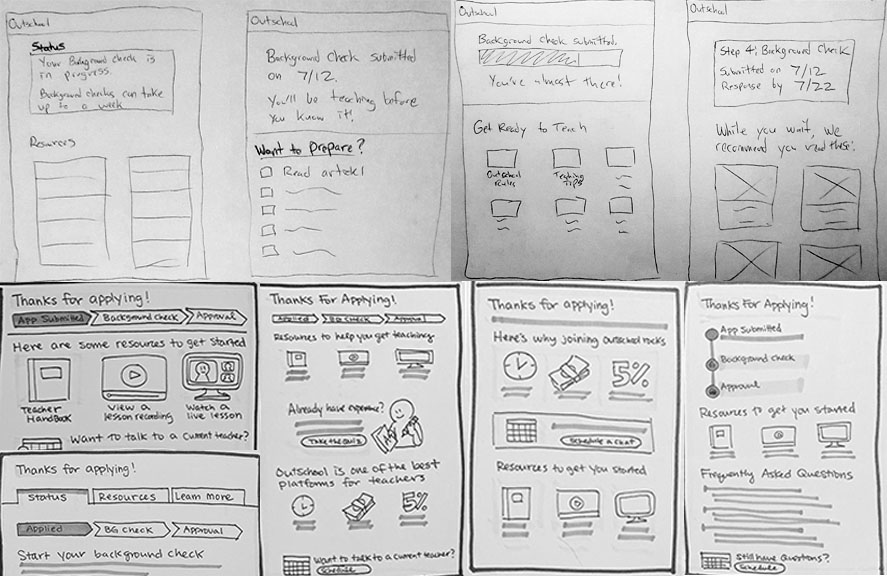 Outschool
Status
Your Background check is
in progress.
Background checks can take
up to a week
Resources
Outschool
Background check submitted
on 7/12.
You'll be teaching before
you know it!
Want to prepare?
Read article 1
Outschool
Background check submitted.
You're almost there!
Get Ready to Teach
Outschool
Rules
Teaching
Tips
Outschool
Step 4: Background Check
Submitted on 7/12
Response by 7/22
While you wait, we
recommend you read these:
Thanks for applying!
App Submitted
Background Check
Approval
Here are some resources to get started
Teacher
Handbook
View a
lesson recording
Watch a
live lesson
Want to talk to a current teacher?
Thanks for applying!
Status
Resources
Learn more
Applied
BG Check
Approval
Start your background check
Thanks For Applying!
Applied
BG Check
Approval
Resources to help you get teaching
Already have experience?
Take the Quiz
Outschool is one of the best
platforms for teachers
5%
Want to talk to a current teacher?
Schedule
Thanks for applying!
Here's why joining outschool rocks
5%
Schedule a chat
Resources to get you started
Thanks For Applying!
App Submitted
Background Check
Approval
Resources to get you started
Frequently Asked Questions
Still have Questions?
Schedule